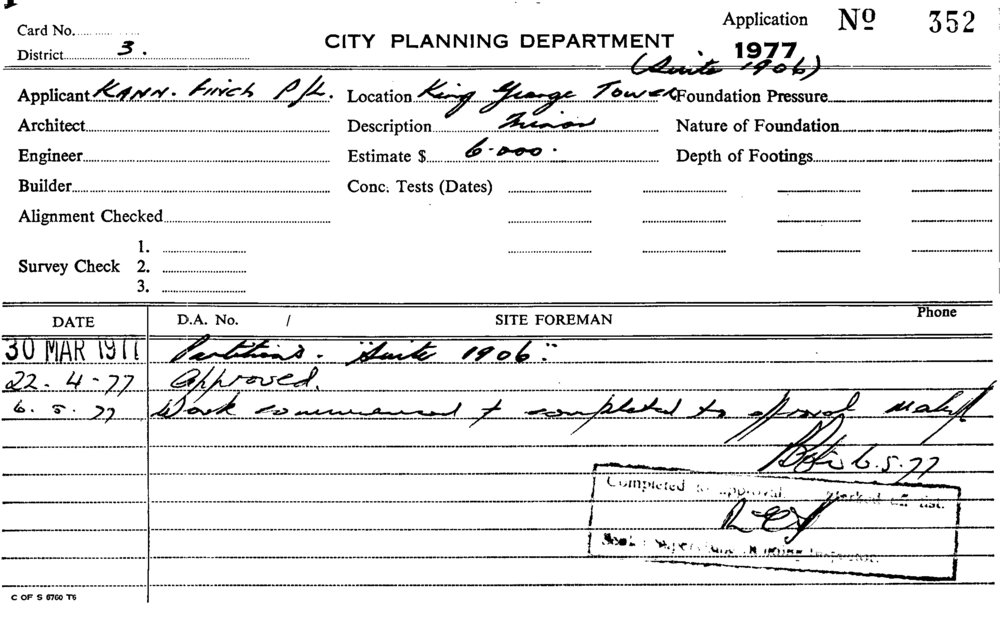 Card No.
District 3.
CITY PLANNING DEPARTMENT
Application Nº 352
1977
(Suite 1906)
Applicant KANN. FINCH P/L. Location King George TOWER Foundation Pressure
Architect Description Minor Nature of Foundation
Engineer Estimate $ 6.000. Depth of Footings
Builder Conc. Tests (Dates)
Alignment Checked
1.
Survey Check 2.
3.
DATE D.A. No. / SITE FOREMAN Phone
30 MAR 1977 Partitions. "Suite 1906."
22.4-77 Approved.
6.5.77 Work commenced & completed to approval
6.5.77
Completed to approval. Marked off list.
C OF S 8760 T6